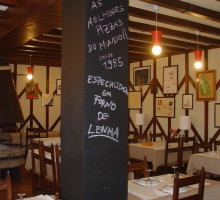 AS
MELHORES
PIZZAS
DO MUNDO!!
DESDE
1985
ESPECIALIDADE
EM
FORNO
DE
LENHA